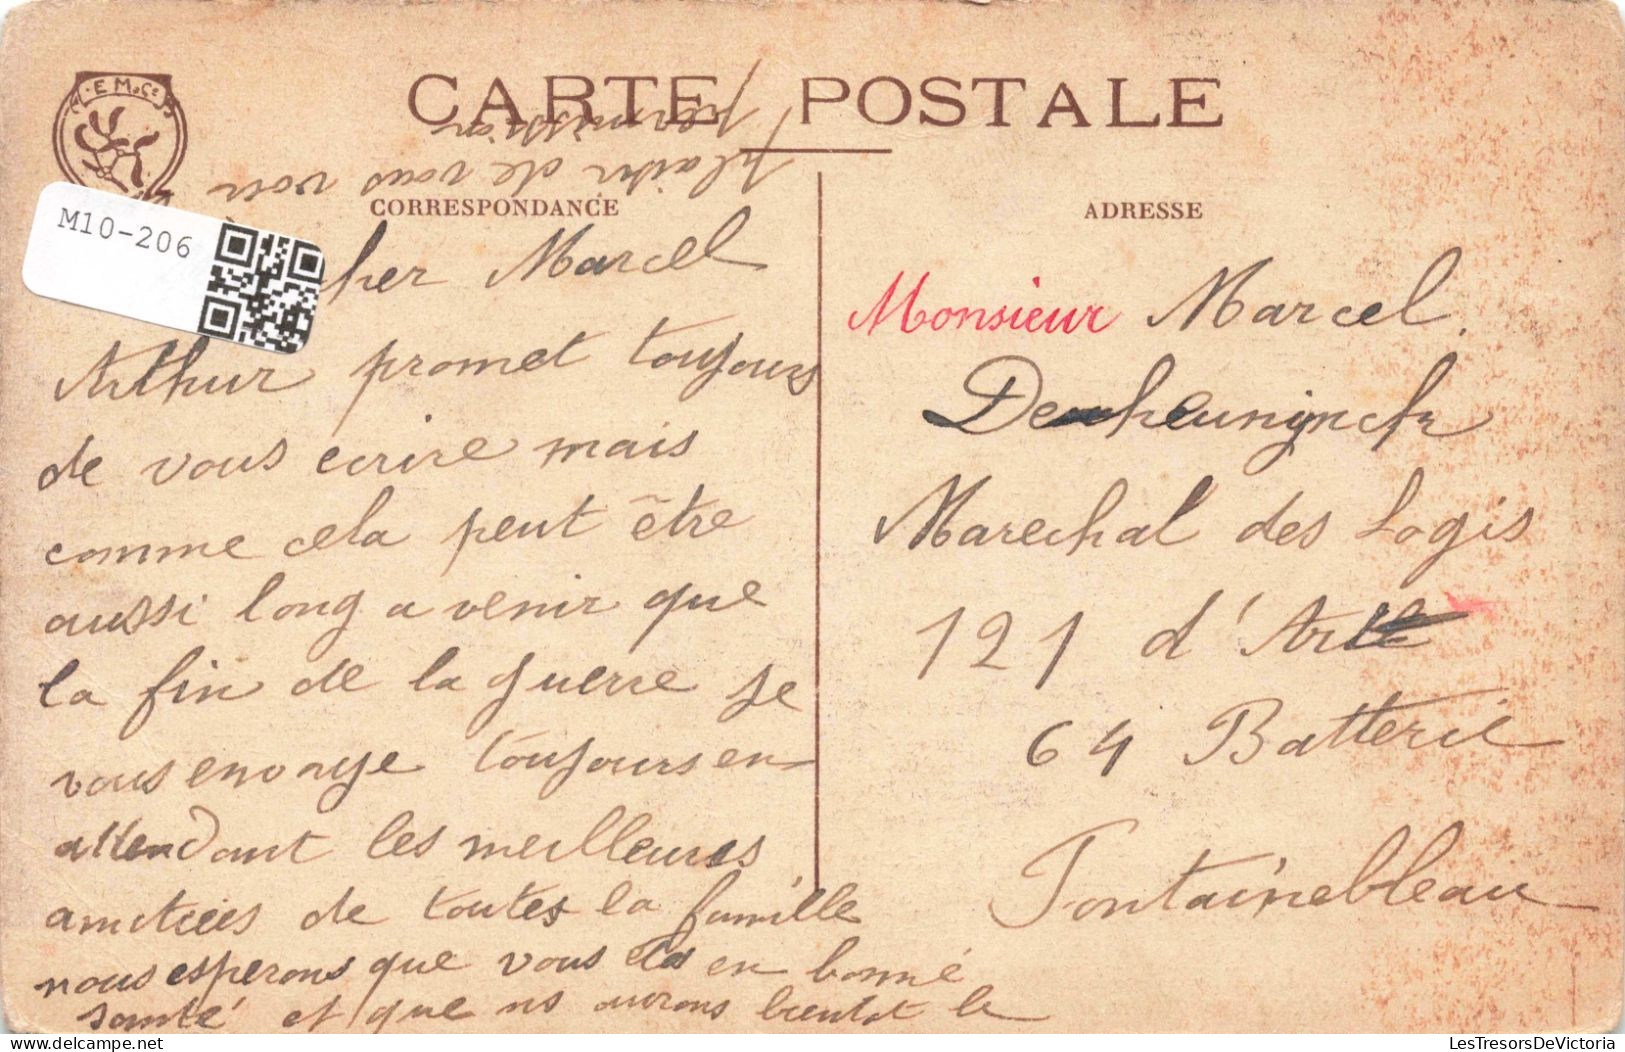 CARTE POSTALE
CORRESPONDANCE
ADRESSE
M10-206
cher Marcel
Arthur promet toujours
de vous ecrire mais
comme cela peut être
aussi long a venir que
la fin de la guerre je
vous envoye toujours en
attendant les meilleures
amitiées de toutes la famille
nous esperons que vous en bonne
santé et que ns aurons bientot le
plaisir de vous voir
permission
Monsieur Marcel
Marechal des Logis
121 d'Art
64 Batterie
Fontainebleau
LesTresorsDeVictoria